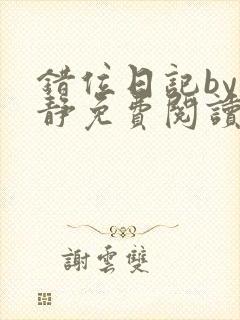 錯位日記by
靜免費閱讀
謝雲雙